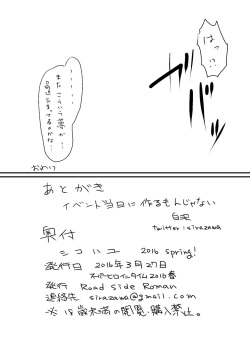 はっ!?
またこういう夢が…
最近たまってるのかな…
おわり
あとがき
イベント当日に作るもんじゃない
白沢
twitter:sirazawa
奥付
シコハユ 2016 spring!
発行日 2016年3月27日
スーパーヒロインタイム2016春
発行 Road side Roman
連絡先 sirazawa@gmail.com
※18歳未満の閲覧・購入禁止。